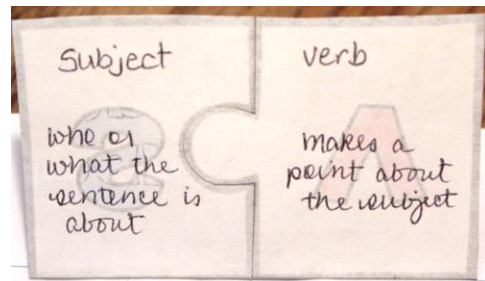 Subject
who or
what the
sentence is
about
verb
makes a
point about
the subject